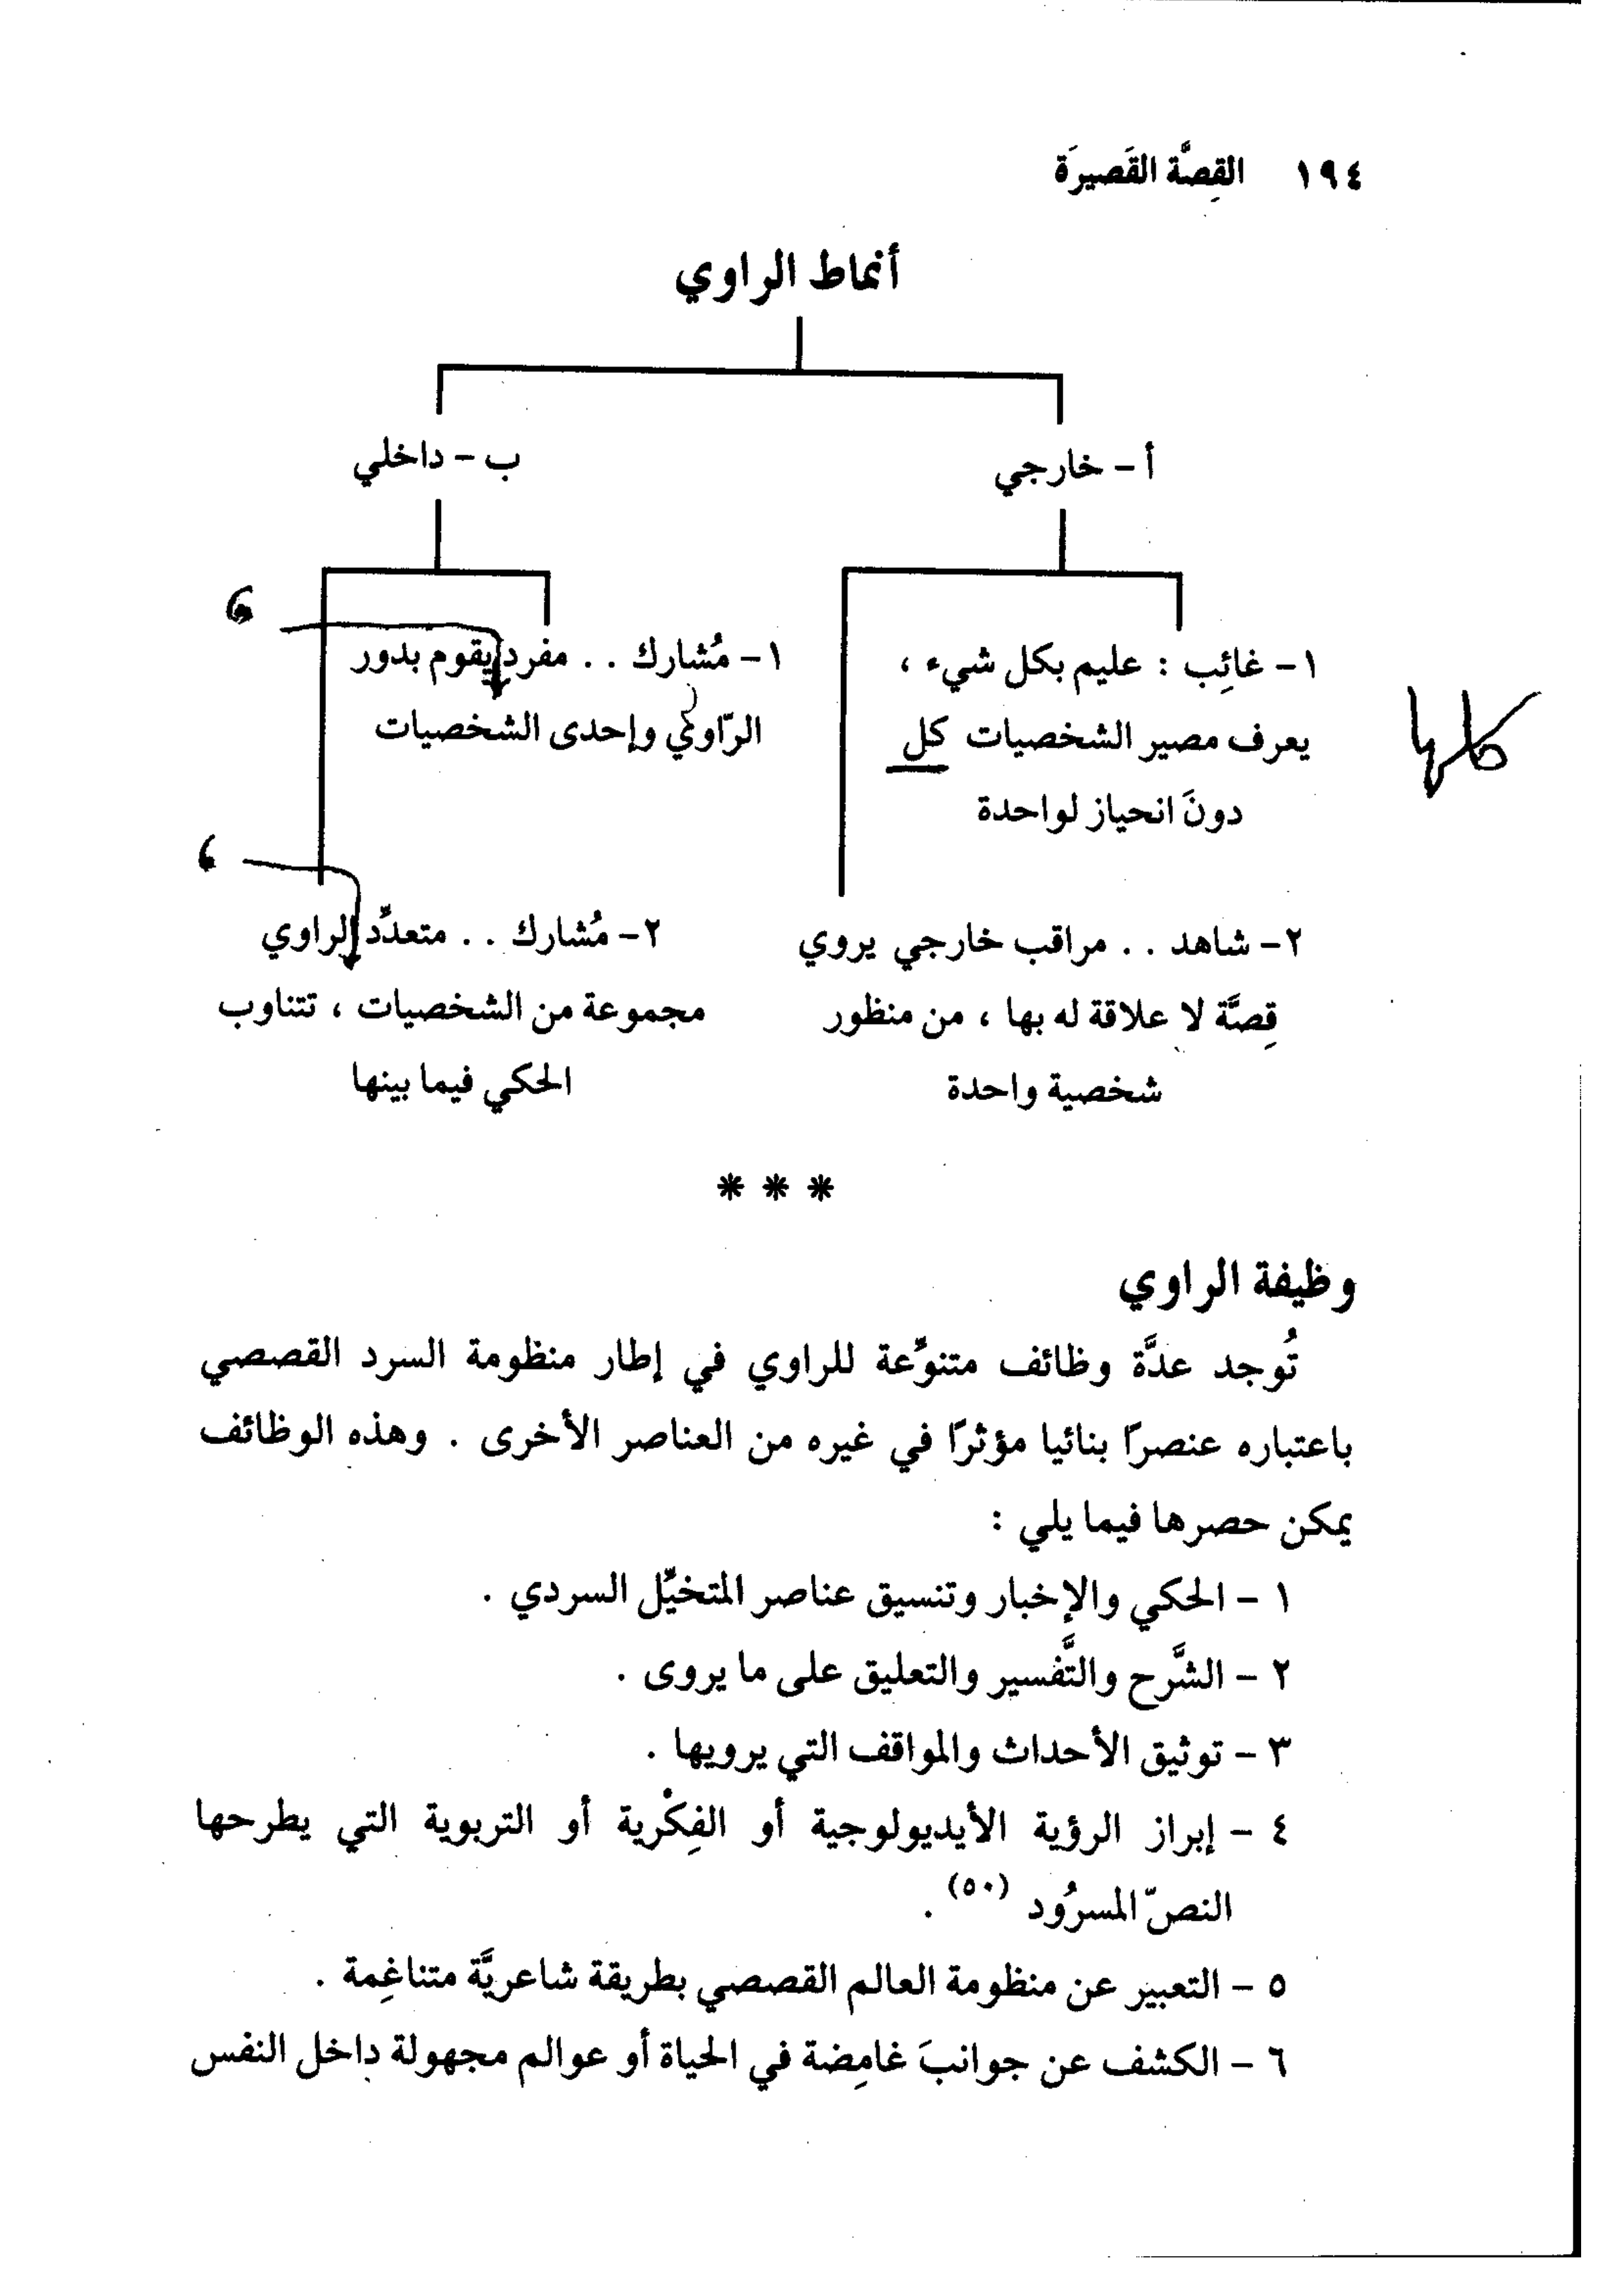 ١٩٤ القِصَّة القَصيرَة
أنماط الراوي
أ - خارجي
ب - داخلي
١- غائِب : عليم بكل شيء ،
يعرف مصير الشخصيات كل
دونَ انحياز لواحدة
كلها
٢- شاهد . . مراقب خارجي يروي
قِصَّة لا علاقة له بها ، من منظور
شخصية واحدة
١- مُشارك . . مفرد يقوم بدور
الرّاوي وإحدى الشخصيات
،
٢- مُشارك . . متعدِّد الراوي
مجموعة من الشخصيات ، تتناوب
الحكي فيما بينها
،
* * *
وظيفة الراوي
تُوجد عدَّة وظائف متنوِّعة للراوي في إطار منظومة السرد القصصي
باعتباره عنصرًا بنائيا مؤثرًا في غيره من العناصر الأخرى . وهذه الوظائف
يمكن حصرها فيما يلي :
١ - الحكي والإخبار وتنسيق عناصر المتخيِّل السردي .
٢ - الشَّرح والتَّفسير والتعليق على ما يروى .
٣ - توثيق الأحداث والمواقف التي يرويها .
٤ - إبراز الرؤية الأيديولوجية أو الفِكْرية أو التربوية التي يطرحها
النصّ المسرُود (٥٠) .
٥ - التعبير عن منظومة العالم القصصي بطريقة شاعريَّة متناغِمة .
٦ - الكشف عن جوانبَ غامِضة في الحياة أو عوالم مجهولة داخل النفس